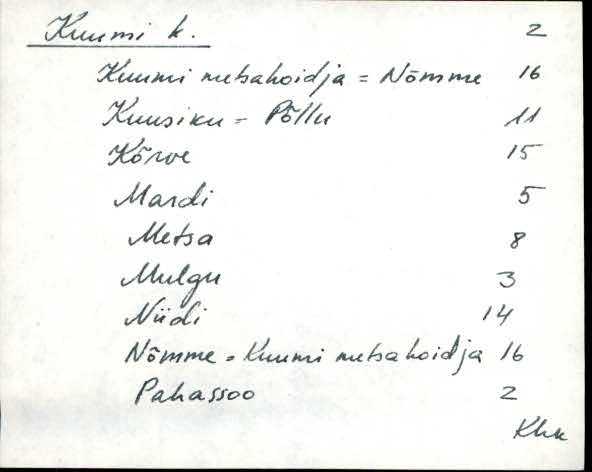 Kuumi k. 2
Kuumi metsahoidja = Nõmme 16
Kuusiku = Põllu 11
Kõrve 15
Mardi 5
Metsa 8
Mulgu 3
Niidi 14
Nõmme = Kuumi metsahoidja 16
Pahassoo 2
Khk